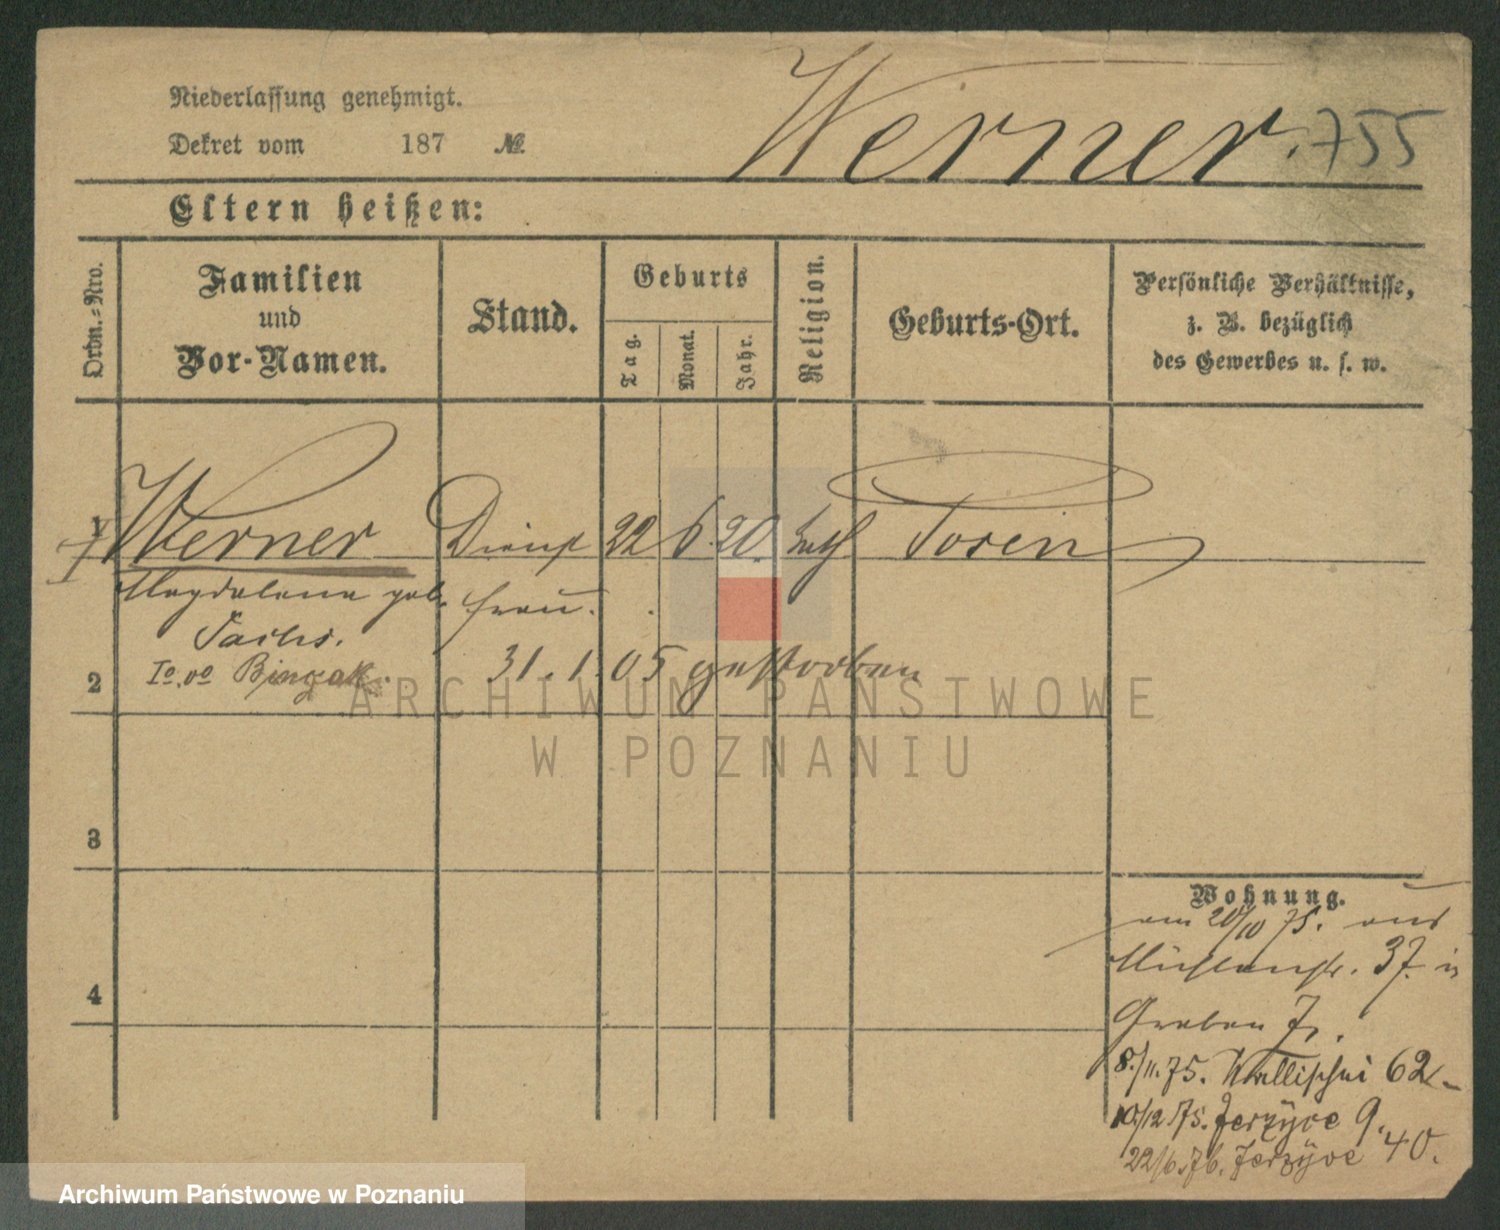 Niederlassung genehmigt.
Dekret vom 187 №
Werner. 755
Eltern heißen:
Ordn.-Nro.
Familien
und
Vor-Namen.
Stand.
Geburts
Tag.
Monat.
Jahr.
Religion.
Geburts-Ort.
Persönliche Verhältnisse,
z. B. bezüglich
des Gewerbes u. s. w.
1 Werner Dienst 22 6. 20. kath Posen
Magdalena geb. frau.
Sachs.
2 Io. vo 31. 1. 05 gestorben
ARCHIWUM PAŃSTWOWE
W POZNANIU
3
4
Wohnung.
am 20/10 75. aus
37. in
Graben 7.
8./11. 75. Wallischei 62
10/12 75. Jerzyce 9.
22/6. 76. Jerzyce 40.
Archiwum Państwowe w Poznaniu